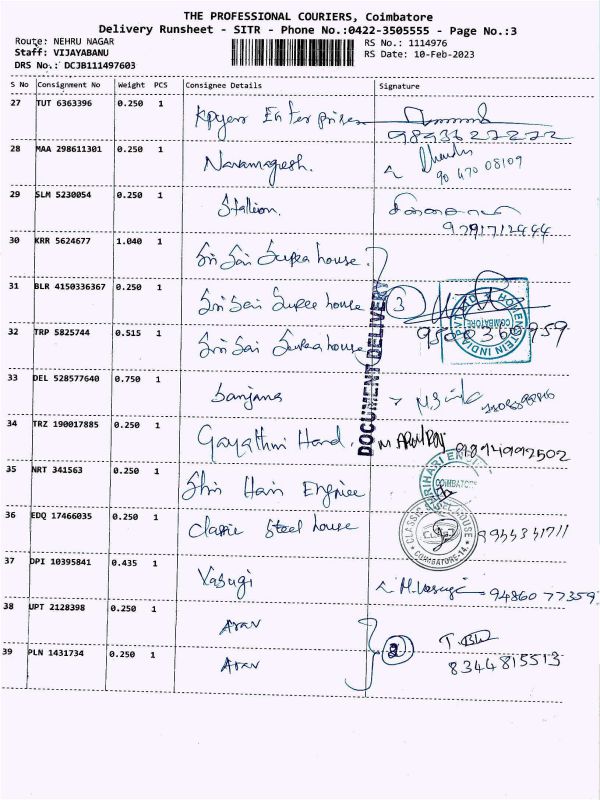 THE PROFESSIONAL COURIERS, Coimbatore
Delivery Runsheet - SITR - Phone No.:0422-3505555 - Page No.:3
Route: NEHRU NAGAR
RS No.: 1114976
Staff: VIJAYABANU
RS Date: 10-Feb-2023
DRS No.: DCJB111497603
S No Consignment No Weight PCS Consignee Details Signature
27 TUT 6363396 0.250 1 Enterprises
28 MAA 298611301 0.250 1 90 470 08109
29 SLM 5230054 0.250 1 Stallion. 9791712444
30 KRR 5624677 1.040 1 Sri Sai Supea house.
31 BLR 4150336367 0.250 1 Sri Sai Supee house 3
32 TRP 5825744 0.515 1 Sri Sai Supea house
DOCUMENT DELIVERY
HOLENSTEIN INDIA
COIMBATORE
33 DEL 528577640 0.750 1 Sanjana
34 TRZ 190017885 0.250 1 Gayathri Hard.
35 NRT 341563 0.250 1 Shri Hari Enginee
COIMBATORE
36 EDQ 17466035 0.250 1 Classic Steel house
CLASSIC STEEL HOUSE
COIMBATORE-14
37 DPI 10395841 0.435 1 Vasugi M.Vasugi 94860 77359
38 UPT 2128398 0.250 1 Arav
39 PLN 1431734 0.250 1 Arav 2 8344815513